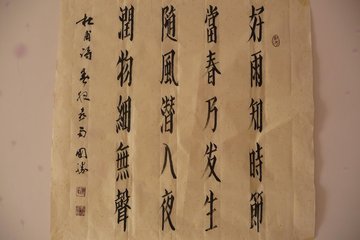 好雨知時節
當春乃发生
隨風潜入夜
潤物細無聲
杜甫詩